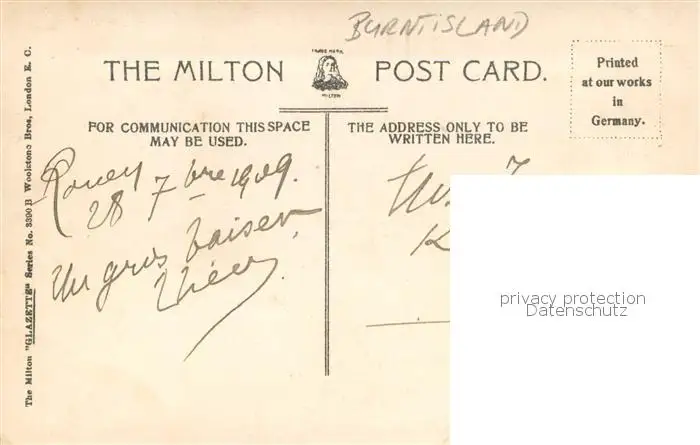 BURNTISLAND
THE MILTON POST CARD.
TRADE MARK
MILTON
Printed
at our works
in
Germany.
FOR COMMUNICATION THIS SPACE
MAY BE USED.
THE ADDRESS ONLY TO BE
WRITTEN HERE.
Rouen
28 7bre 1909.
Un gros baiser
The Milton "GLAZETTE" Series No. 3390 B Woolstone Bros, London E. C.
privacy protection
Datenschutz